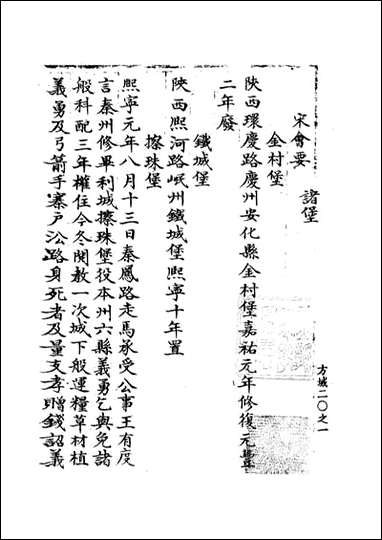 宋會要
諸堡
金村堡
陝西環慶路慶州安化縣金村堡嘉祐元年修復元豐
二年廢
鐵城堡
陝西熙河路岷州鐵城堡熙寧十年置
擦珠堡
熙寧元年八月十三日秦鳳路走馬承受公事王有度
言秦州修畢利城擦珠堡役本州六縣義勇乞與免諸
般科配三年權住今冬閱教一次城下般運糧草材植
義勇及弓箭手寨戶沿路身死者及量支孝贈錢詔義
方域二〇之一